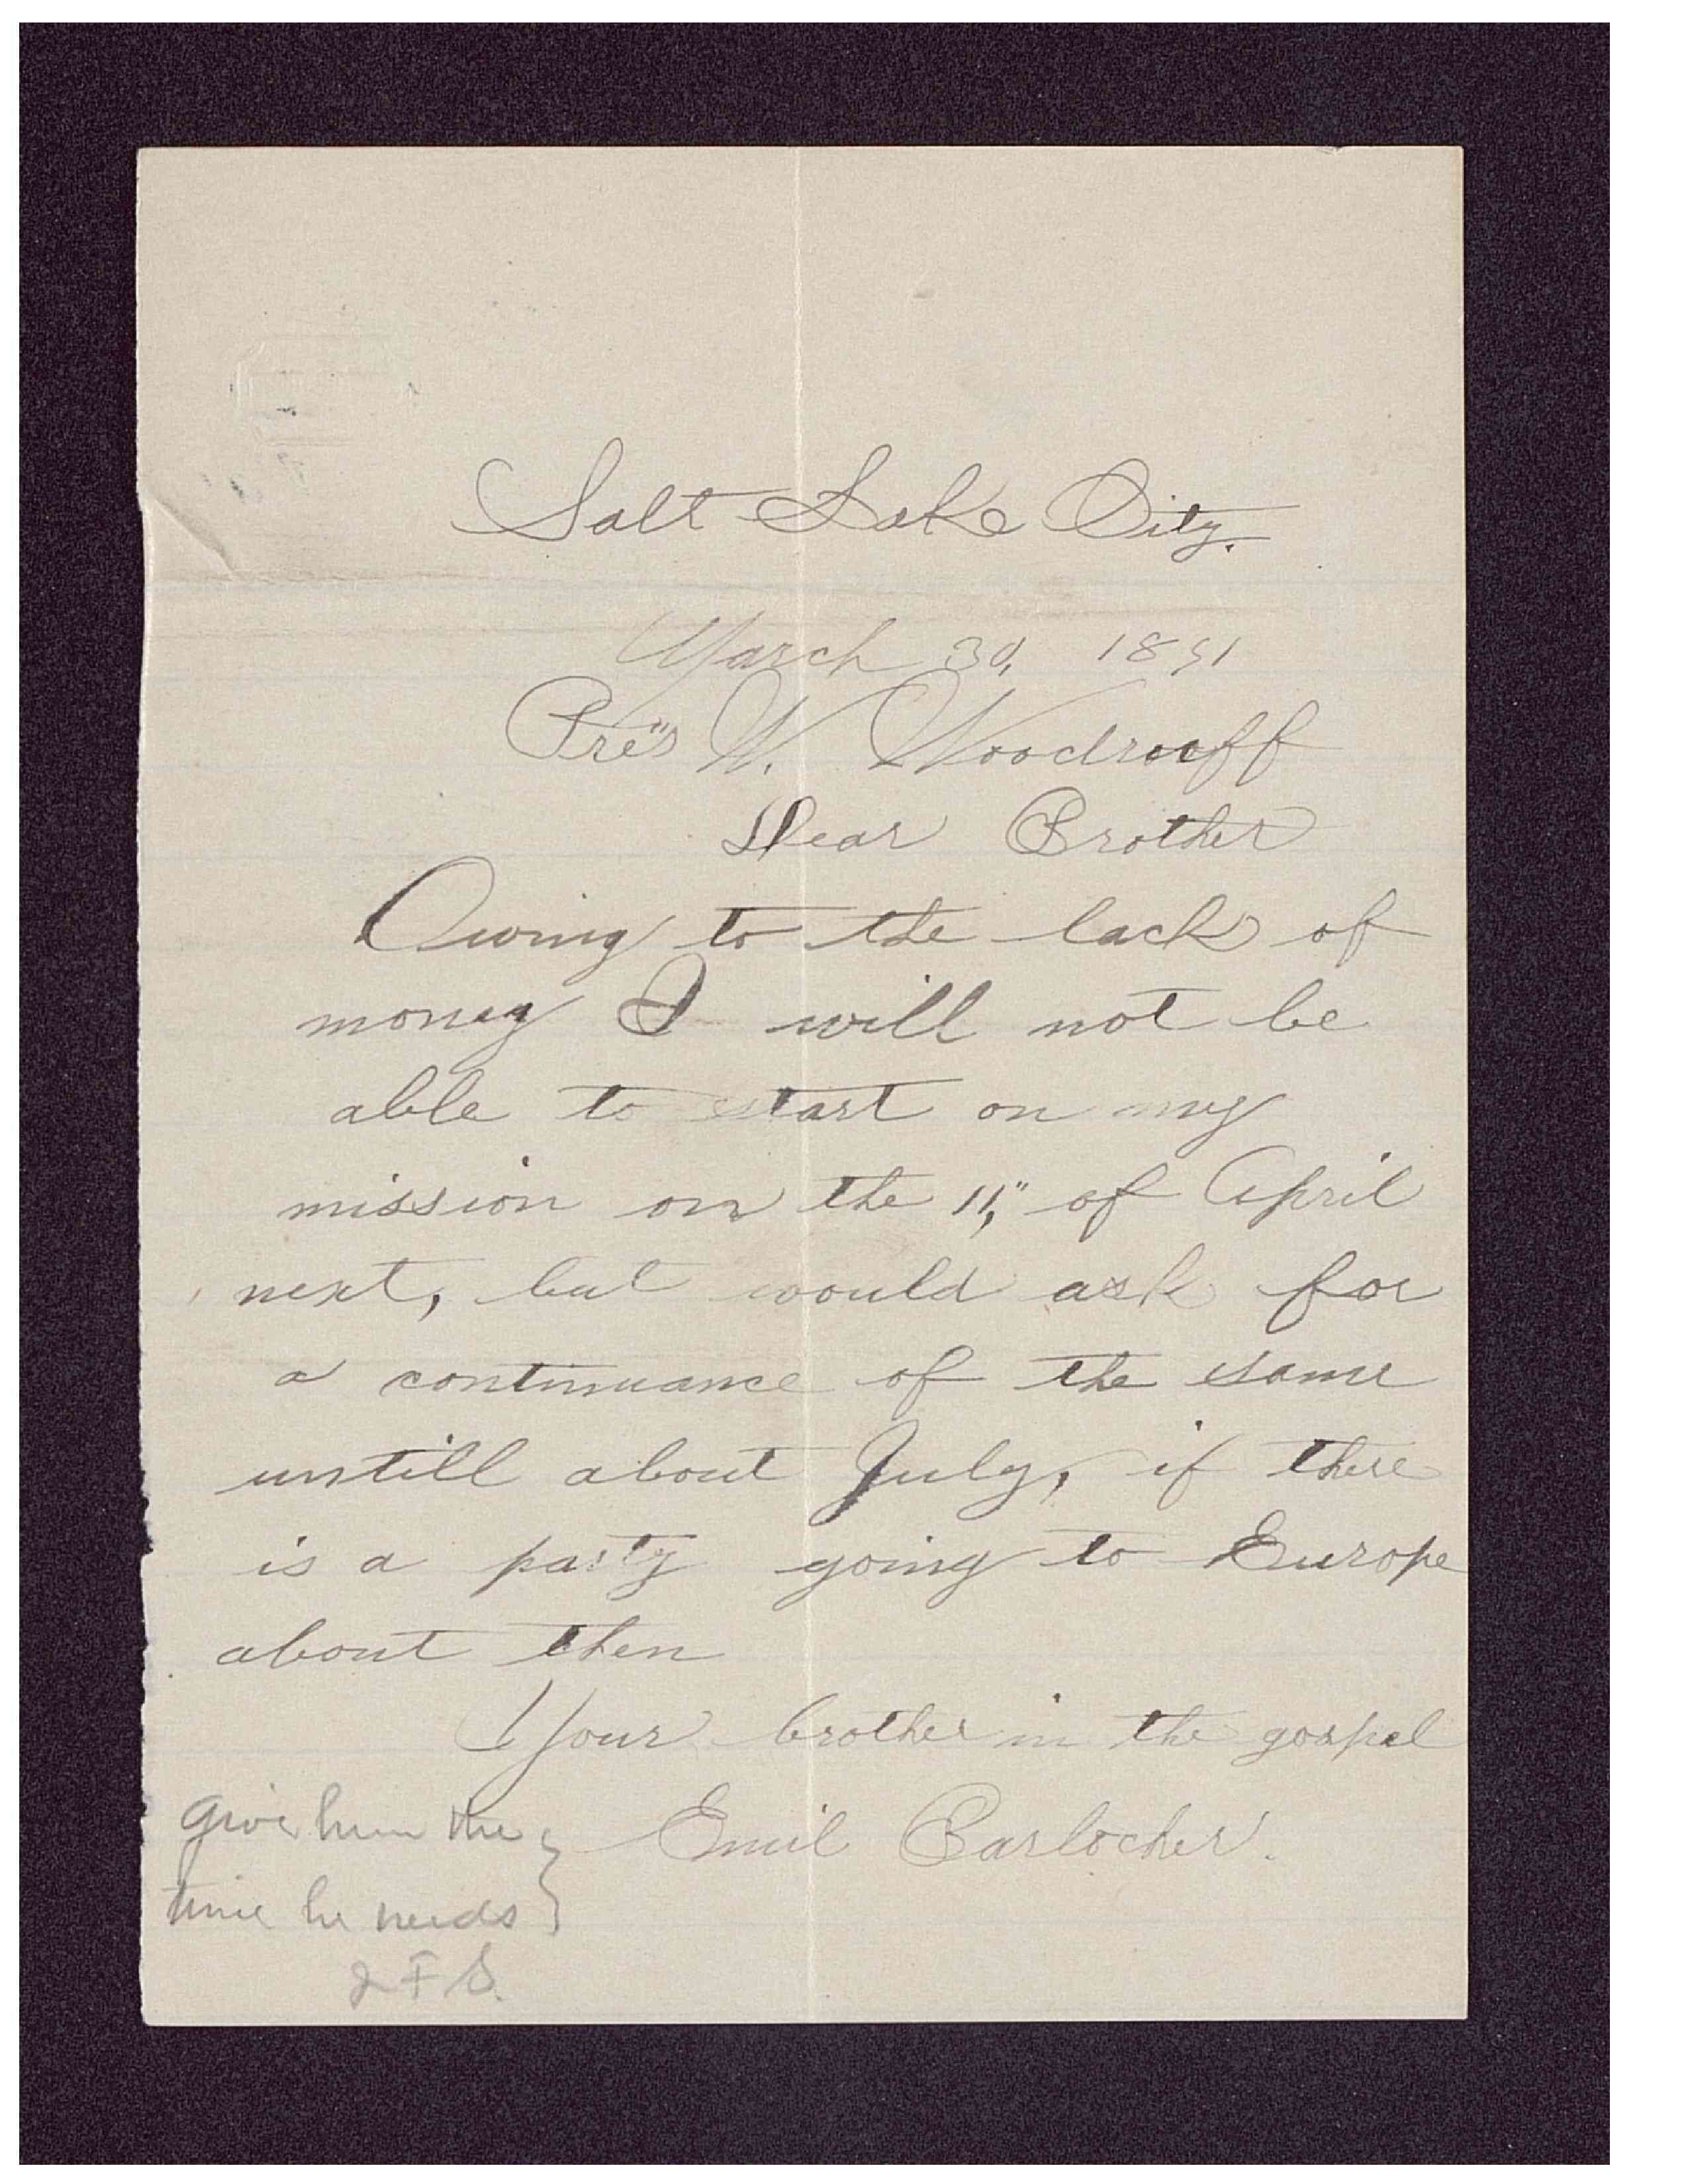 Salt Lake City.
March 30, 1891
Pres" W. Woodruff
Dear Brother
Owing to the lack of
money I will not be
able to start on my
mission on the 11," of April
next, but would ask for
a continuance of the same
untill about July, if there
is a party going to Europe
about then
Your brother in the gospel
Emil Barlocher.
give him the
time he needs
J F S.